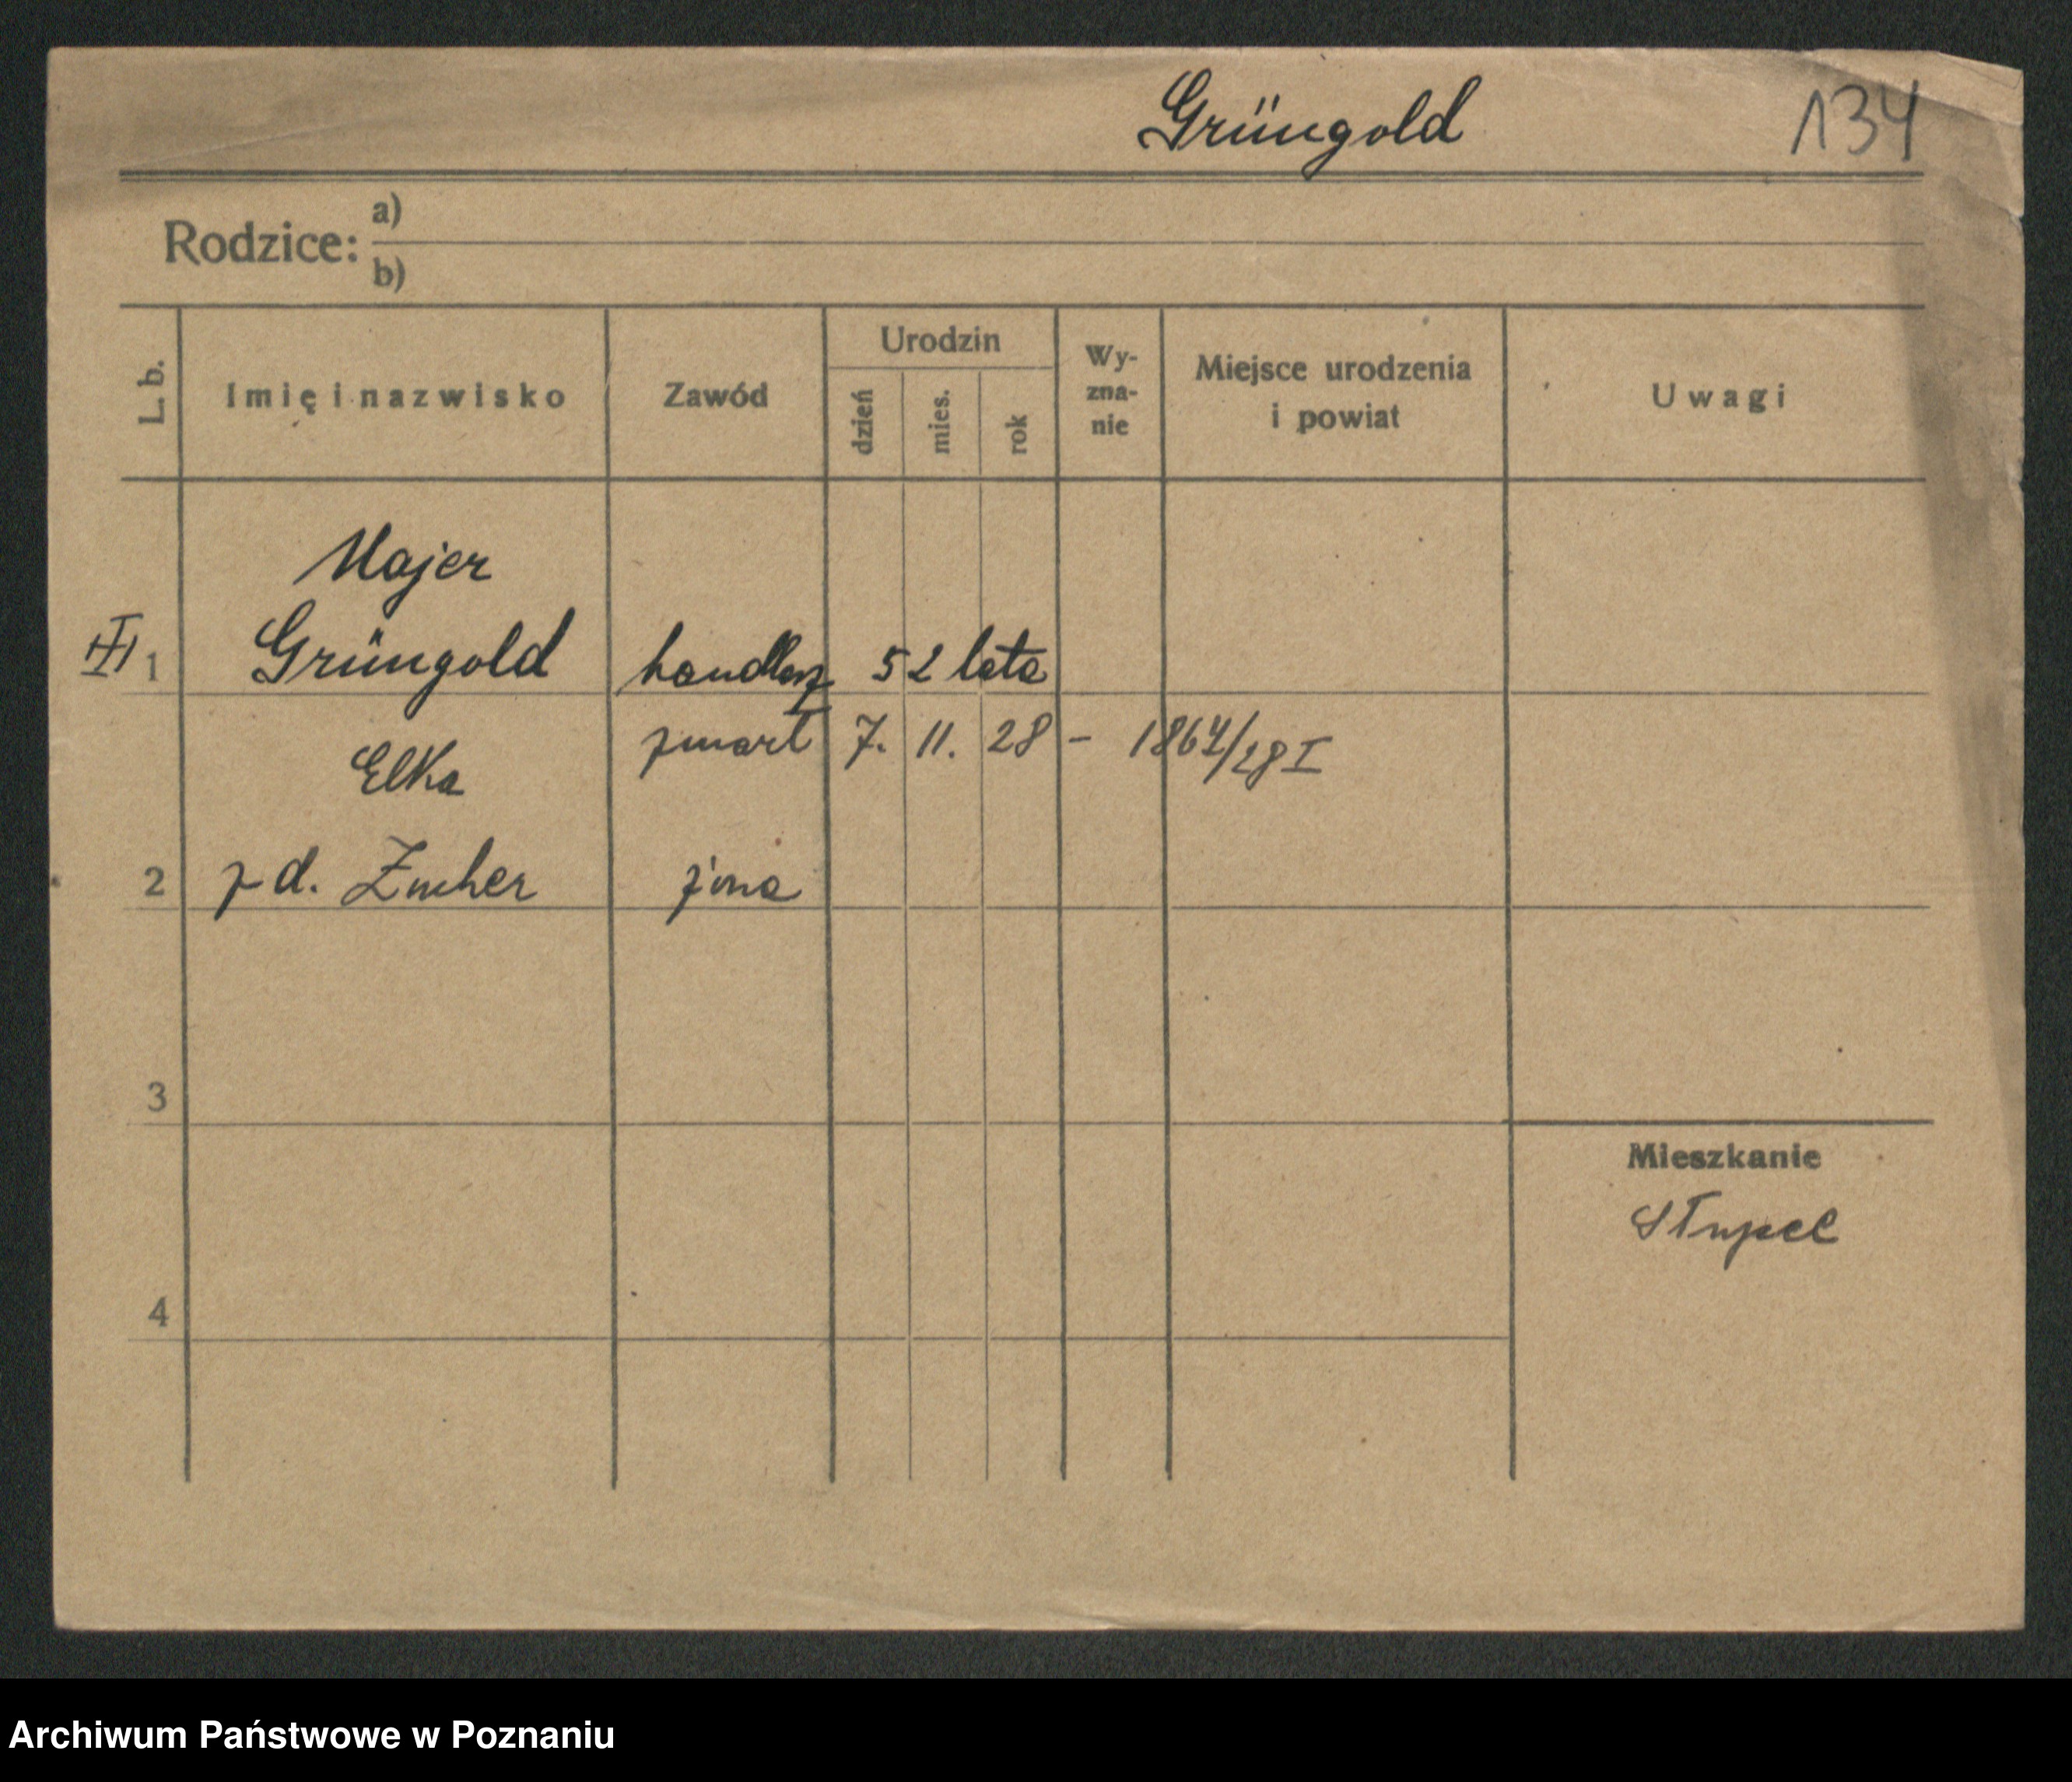 Grüngold 134
Rodzice: a)
b)
L. b. Imię i nazwisko Zawód Urodzin dzień mies. rok Wyznanie Miejsce urodzenia i powiat Uwagi
Majer
1 Grüngold handlarz 52 lata
zmarł 7. 11. 28 - 1864/28 I
Elka
2 z d. Zucher żona
3
Mieszkanie
Słupca
4
Archiwum Państwowe w Poznaniu